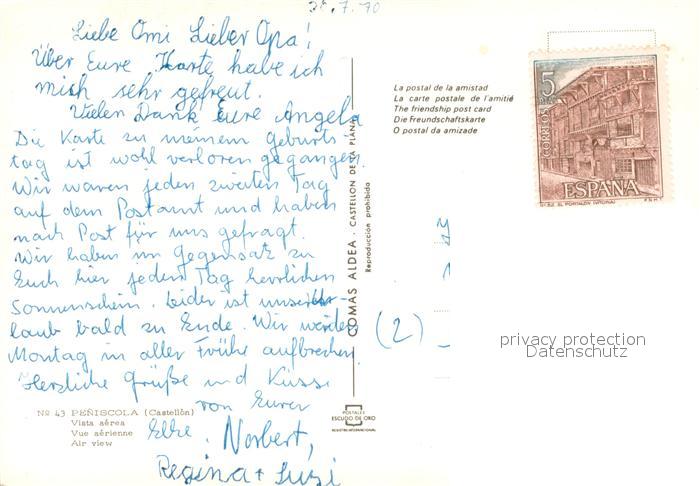 28.7.70
Liebe Omi Lieber Opa!
Über Eure Karte habe ich
mich sehr gefreut.
Vielen Dank Eure Angela
Die Karte zu meinem Geburts
tag ist wohl verloren gegangen.
Wir waren jeden zweiten Tag
auf dem Postamt und haben
nach Post für uns gefragt.
Wir haben im Gegensatz zu
Euch hier jeden Tag herrlichen
Sonnenschein. Leider ist unser Ur-
laub bald zu Ende. Wir werden
Montag in aller Frühe aufbrechen.
Herzliche Grüße und Küsse
von Eurer
Elke. Norbert,
Regina + Susi
Nº 43 PEÑISCOLA (Castellón)
Vista aérea
Vue aérienne
Air view
COMAS ALDEA - CASTELLON DE LA PLANA
Reproducción prohibida
POSTALES
ESCUDO DE ORO
REGISTRO INTERNACIONAL
La postal de la amistad
La carte postale de l'amitié
The friendship post card
Die Freundschaftskarte
O postal da amizade
5
PTA
CORREOS
ESPAÑA
EL PORTALON (VITORIA)
F.N.M.T.
(2)
privacy protection
Datenschutz